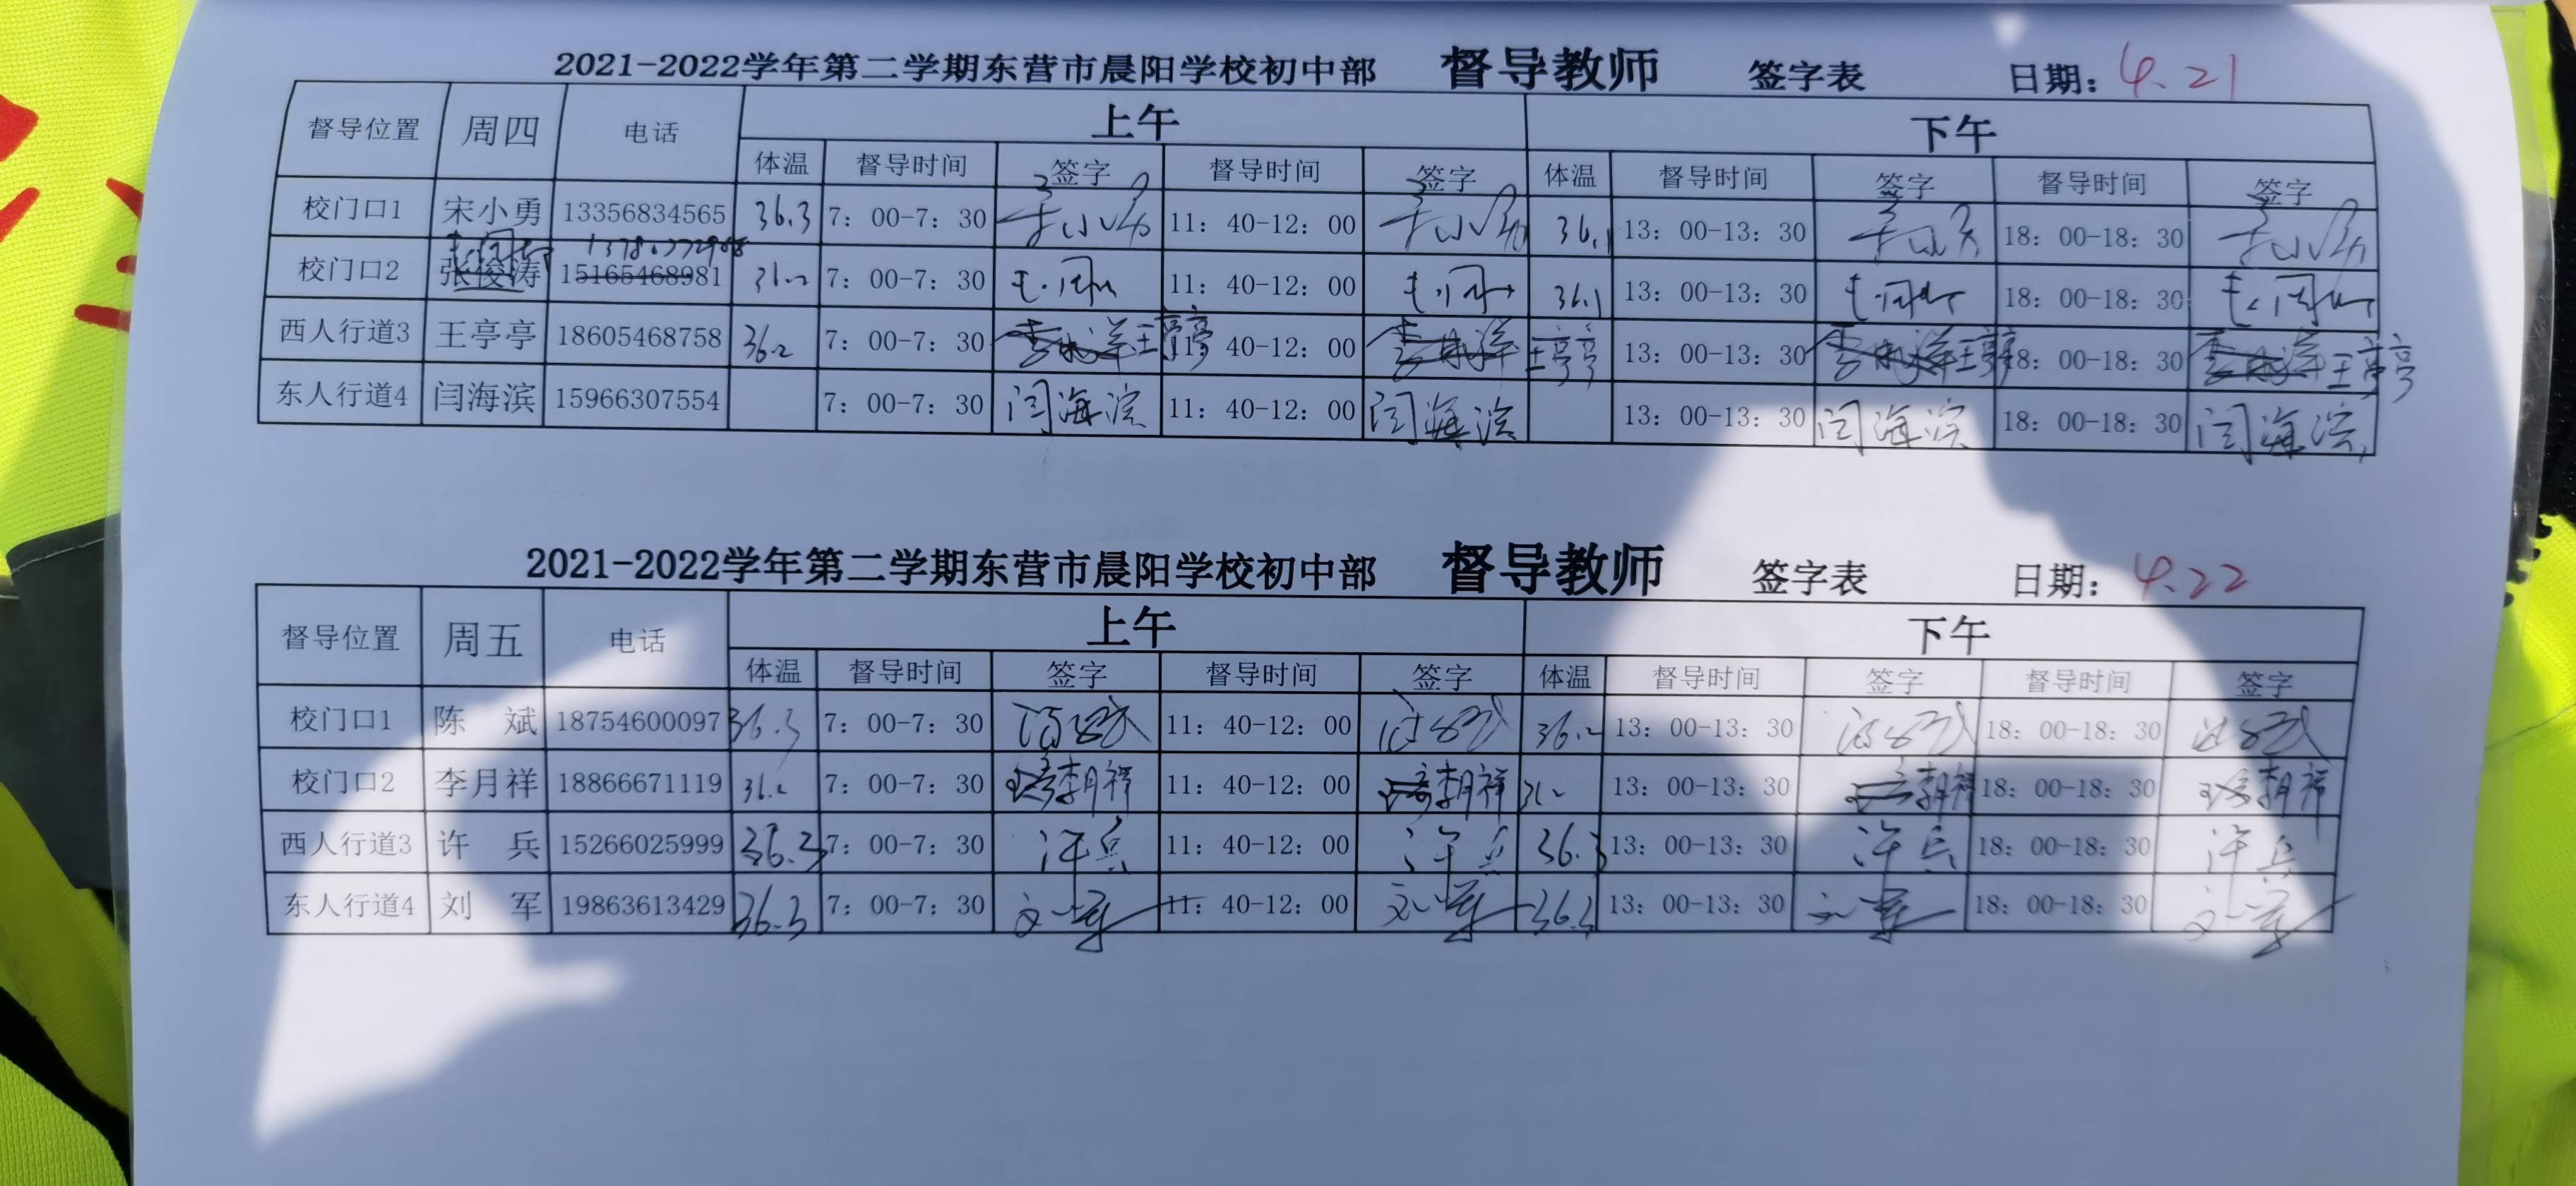 2021-2022学年第二学期东营市晨阳学校初中部 督导教师 签字表 日期：4.21
督导位置 周四 电话 上午 下午
体温 督导时间 签字 督导时间 签字 体温 督导时间 签字 督导时间 签字
校门口1 宋小勇 13356834565 36.3 7：00-7：30 宋小勇 11：40-12：00 宋小勇 36.1 13：00-13：30 18：00-18：30 宋小勇
校门口2 张俊涛 15165468981 7：00-7：30 11：40-12：00 36.1 13：00-13：30 18：00-18：30
西人行道3 王亭亭 18605468758 36.2 7：00-7：30 王亭亭 11：40-12：00 王亭亭 13：00-13：30 王亭亭 18：00-18：30 王亭亭
东人行道4 闫海滨 15966307554 7：00-7：30 闫海滨 11：40-12：00 闫海滨 13：00-13：30 闫海滨 18：00-18：30 闫海滨
2021-2022学年第二学期东营市晨阳学校初中部 督导教师 签字表 日期：4.22
督导位置 周五 电话 上午 下午
体温 督导时间 签字 督导时间 签字 体温 督导时间 签字 督导时间 签字
校门口1 陈 斌 18754600097 36.3 7：00-7：30 11：40-12：00 36.2 13：00-13：30 18：00-18：30
校门口2 李月祥 18866671119 36.2 7：00-7：30 李月祥 11：40-12：00 李月祥 13：00-13：30 李月祥 18：00-18：30 李月祥
西人行道3 许 兵 15266025999 36.3 7：00-7：30 许兵 11：40-12：00 许兵 36.3 13：00-13：30 许兵 18：00-18：30 许兵
东人行道4 刘 军 19863613429 36.3 7：00-7：30 刘军 11：40-12：00 刘军 36.3 13：00-13：30 刘军 18：00-18：30 刘军